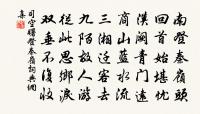 南登秦嶺頭
回首始堪憂
漢闕青門遠
商山藍水流
三湘遷客去
九陌故人游
從此思鄉淚
双垂不復收
司空曙登秦嶺詞典網
集